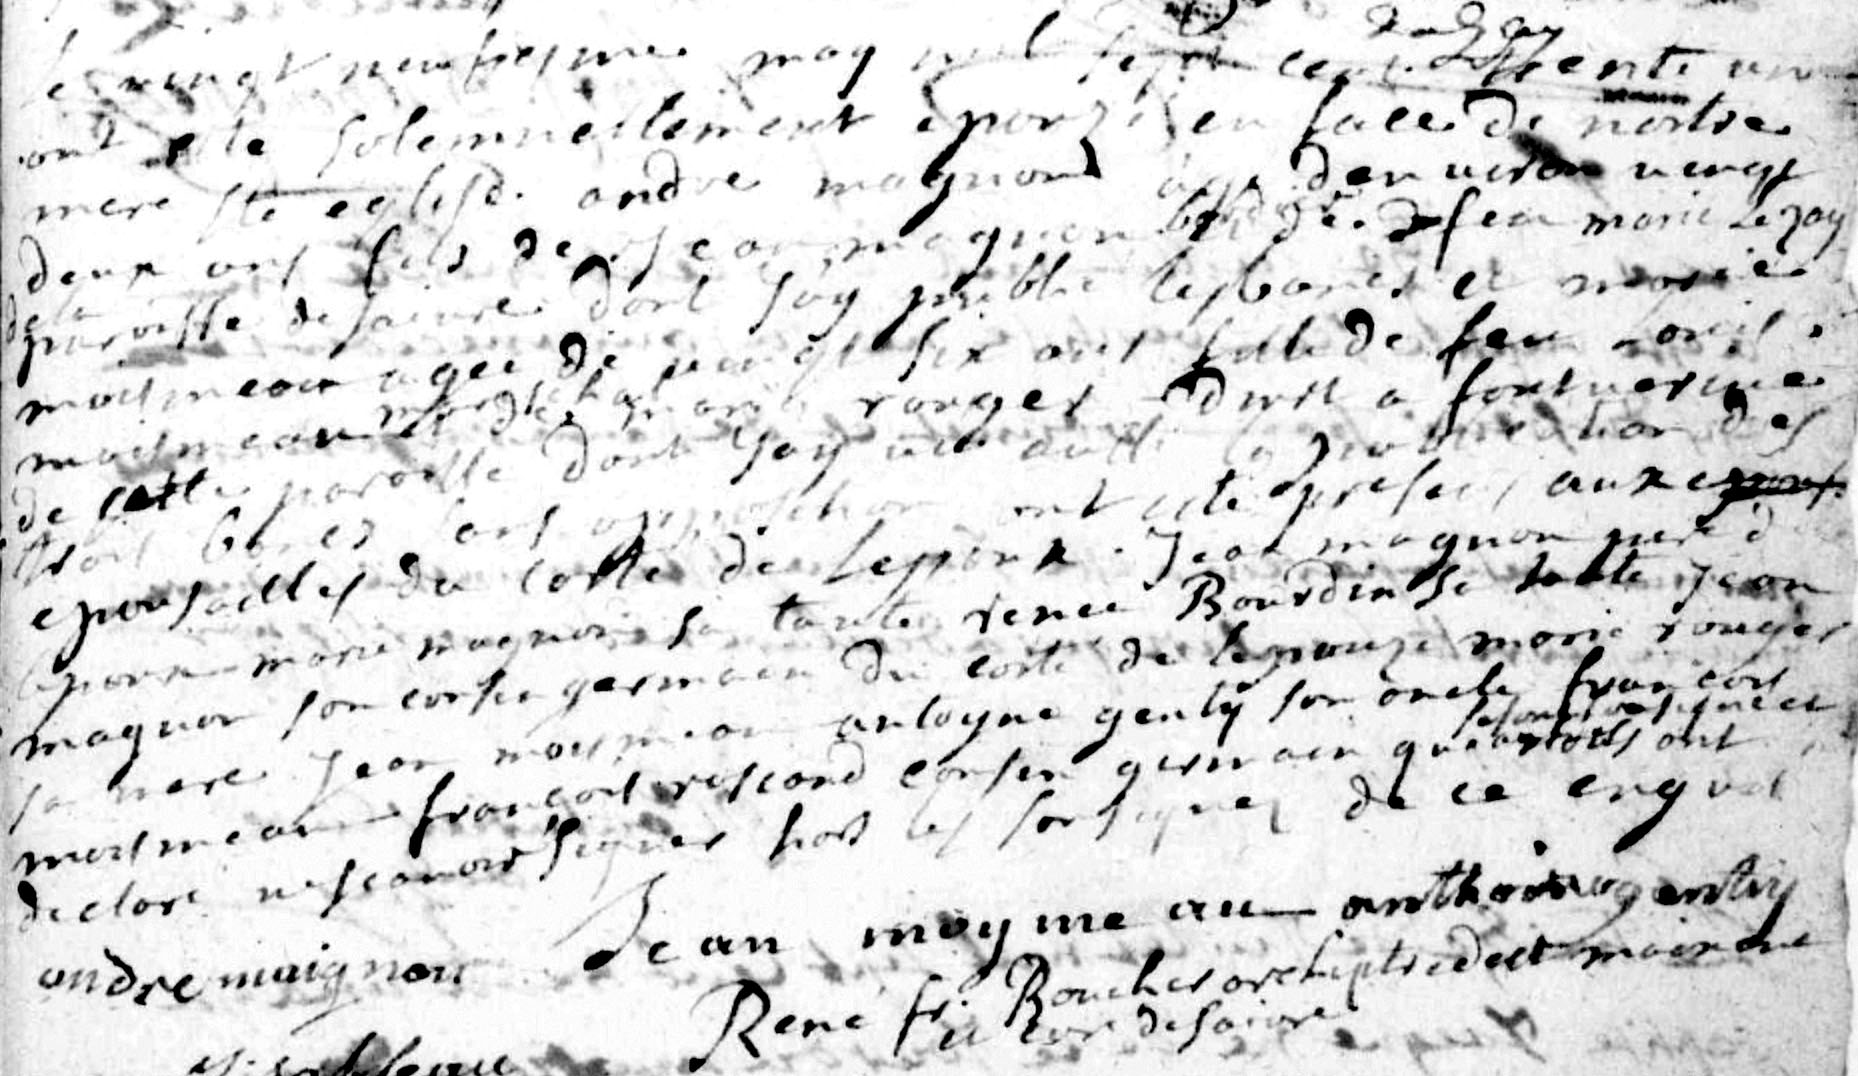 le vingt neufiesme may mil sept cent trente un
ont esté solemnellement epouzé en face de nostre
mere ste eglise andre magnon agé denviron vingt
deux ans fils de Jean magnon et de feu marie Lezay
de la paroisse de saivre dont jay publié les bancs et marie
moismeau agee de vingt six ans fille de feu Louis
moismeau mareschal et de marie rouger
de cette paroisse dont jay aussi la publication des
trois bancs sans opposition ont esté presens aux
epousailles du costé de lepoux Jean magnon pere de
lepoux marie magnon sa tante renee Bourdin sa tante Jean
magnon son cousin germain du costé de lepouze marie rouger
sa mere Jean moismeau antoyne genty son oncle francois
moismeau francois cousin germain qui ont
declaré ne scavoir signer hors les soussignez de ce enquis
andre maignon Jean moymeau anthoine gentiy
René fr. Boucher archiptre de st maixent
curé de saivre